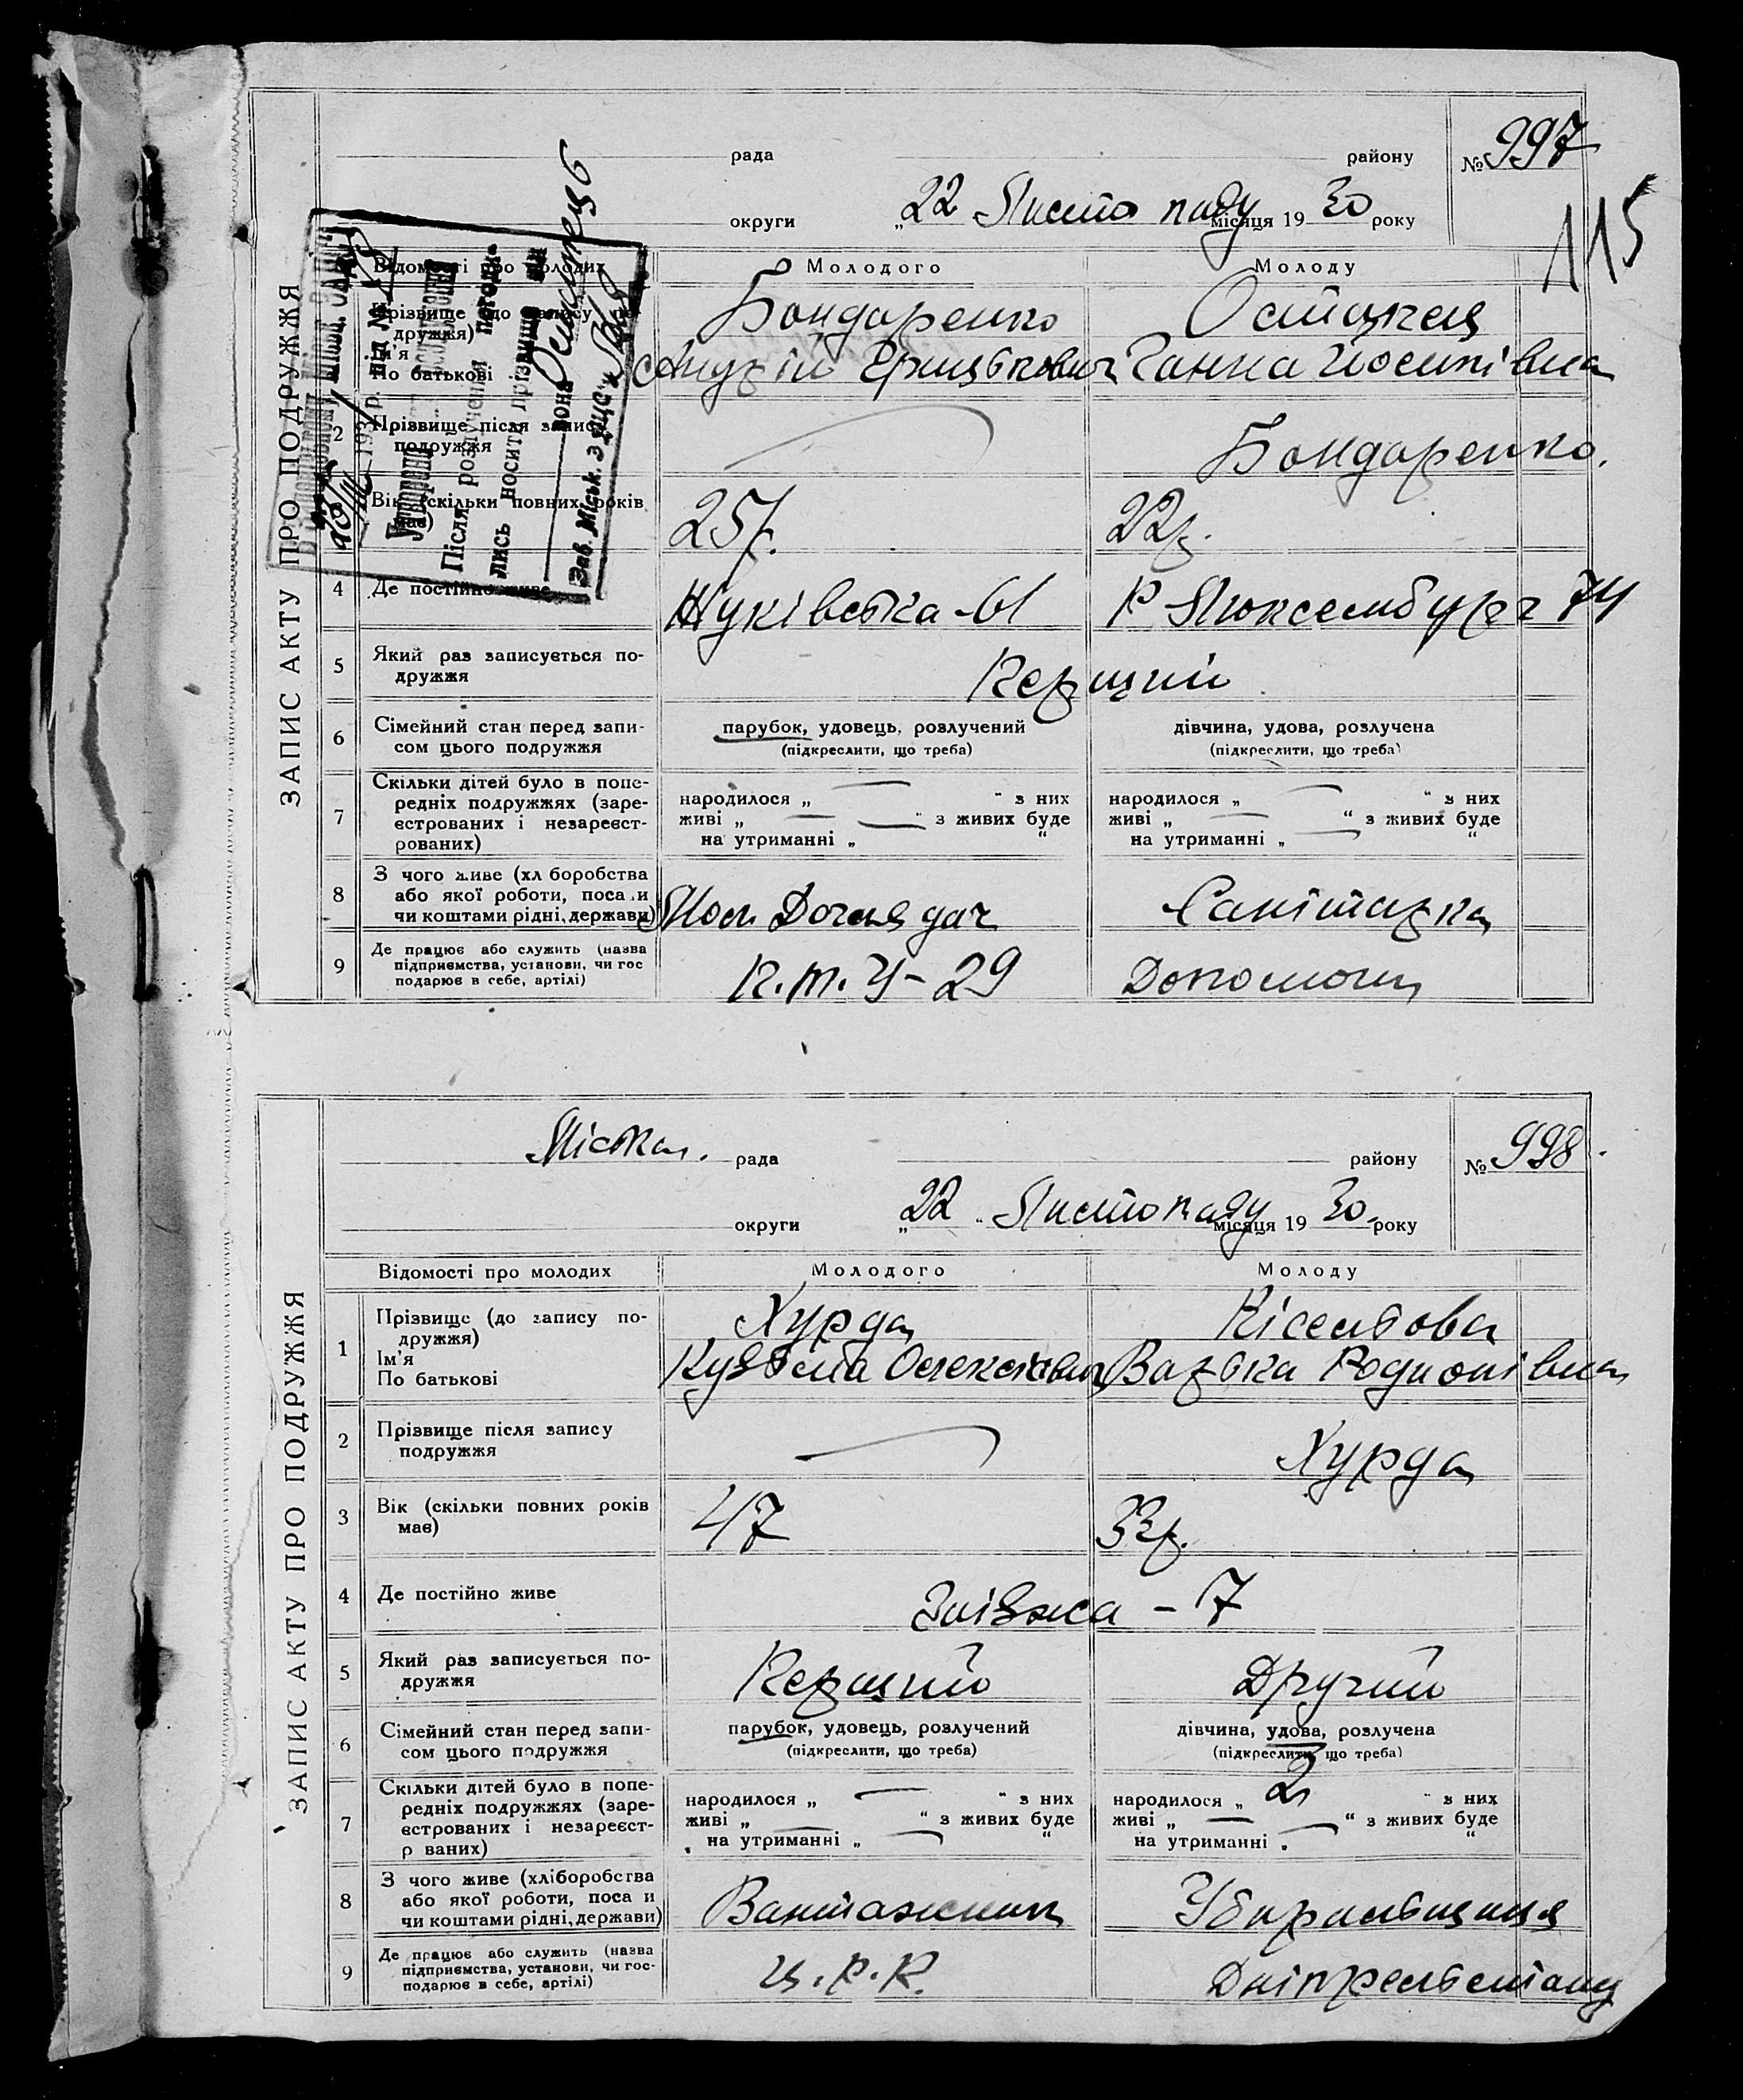 рада району № 997
115
округи „22 Листопаду місяця 19 30 року
ЗАПИС АКТУ ПРО ПОДРУЖЖЯ
Відомості про молодих Молодого Молоду
Прізвище (до запису по-
дружжя) Бондаренко
Ім'я
По батькові Ганна Йосипівна
2 Прізвище після запису
подружжя Бондаренко.
Вік (скільки повних років
має) 25р. 22р.
4 Де постійно живе Жуківська-61 Р Люксембург 74
5 Який раз записується по-
дружжя Перший
6 Сімейний стан перед запи-
сом цього подружжя
парубок, удовець, розлучений
(підкреслити, що треба)
дівчина, удова, розлучена
(підкреслити, що треба)
7 Скільки дітей було в попе-
редніх подружжях (заре-
єстрованих і незареєст-
рованих)
народилося „ — “ з них
живі „ — “ з живих буде
на утриманні „ — “
народилося „ — “ з них
живі „ — “ з живих буде
на утриманні „ — “
8 З чого живе (хл боробства
або якої роботи, поса и
чи коштами рідні, держави) Доглядач Санітарка
9 Де працює або служить (назва
підприємства, установи, чи гос
подарює в себе, артілі) 29 Допомоги
Після розлучення погоди-
лись носити прізвище він
вона
Зав. Міськ. ЗАЦС'у
Міська. рада району № 998.
округи „22“ Листопаду місяця 19 30. року
ЗАПИС АКТУ ПРО ПОДРУЖЖЯ
Відомості про молодих Молодого Молоду
1 Прізвище (до запису по-
дружжя) Хурда Кісельова
Ім'я
По батькові Кузьма Олексієвич Варька Родионівна
2 Прізвище після запису
подружжя Хурда
3 Вік (скільки повних років
має) 47 32р.
4 Де постійно живе - 7
5 Який раз записується по-
дружжя Перший Другий
6 Сімейний стан перед запи-
сом цього подружжя
парубок, удовець, розлучений
(підкреслити, що треба)
дівчина, удова, розлучена
(підкреслити, що треба)
7 Скільки дітей було в попе-
редніх подружжях (заре-
єстрованих і незареєст-
р ваних)
народилося „ — “ з них
живі „ — “ з живих буде
на утриманні „ — “
народилося „ 2 “ з них
живі „ — “ з живих буде
на утриманні „ — “
8 З чого живе (хліборобства
або якої роботи, поса и
чи коштами рідні, держави) Вантажник Убиральщиця
9 Де працює або служить (назва
підприємства, установи, чи гос-
подарює в себе, артілі) Ц.Р.К. Дніпрельстану